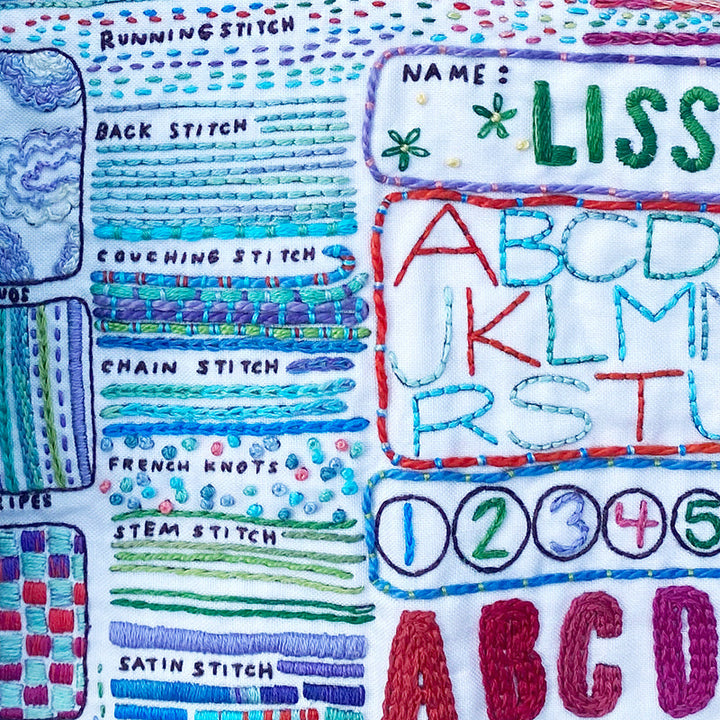 RUNNING STITCH
BACK STITCH
COUCHING STITCH
CHAIN STITCH
FRENCH KNOTS
STEM STITCH
SATIN STITCH
NAME:
LISS
ABCD
JKLM
RSTU
1 2 3 4 5
ABCD